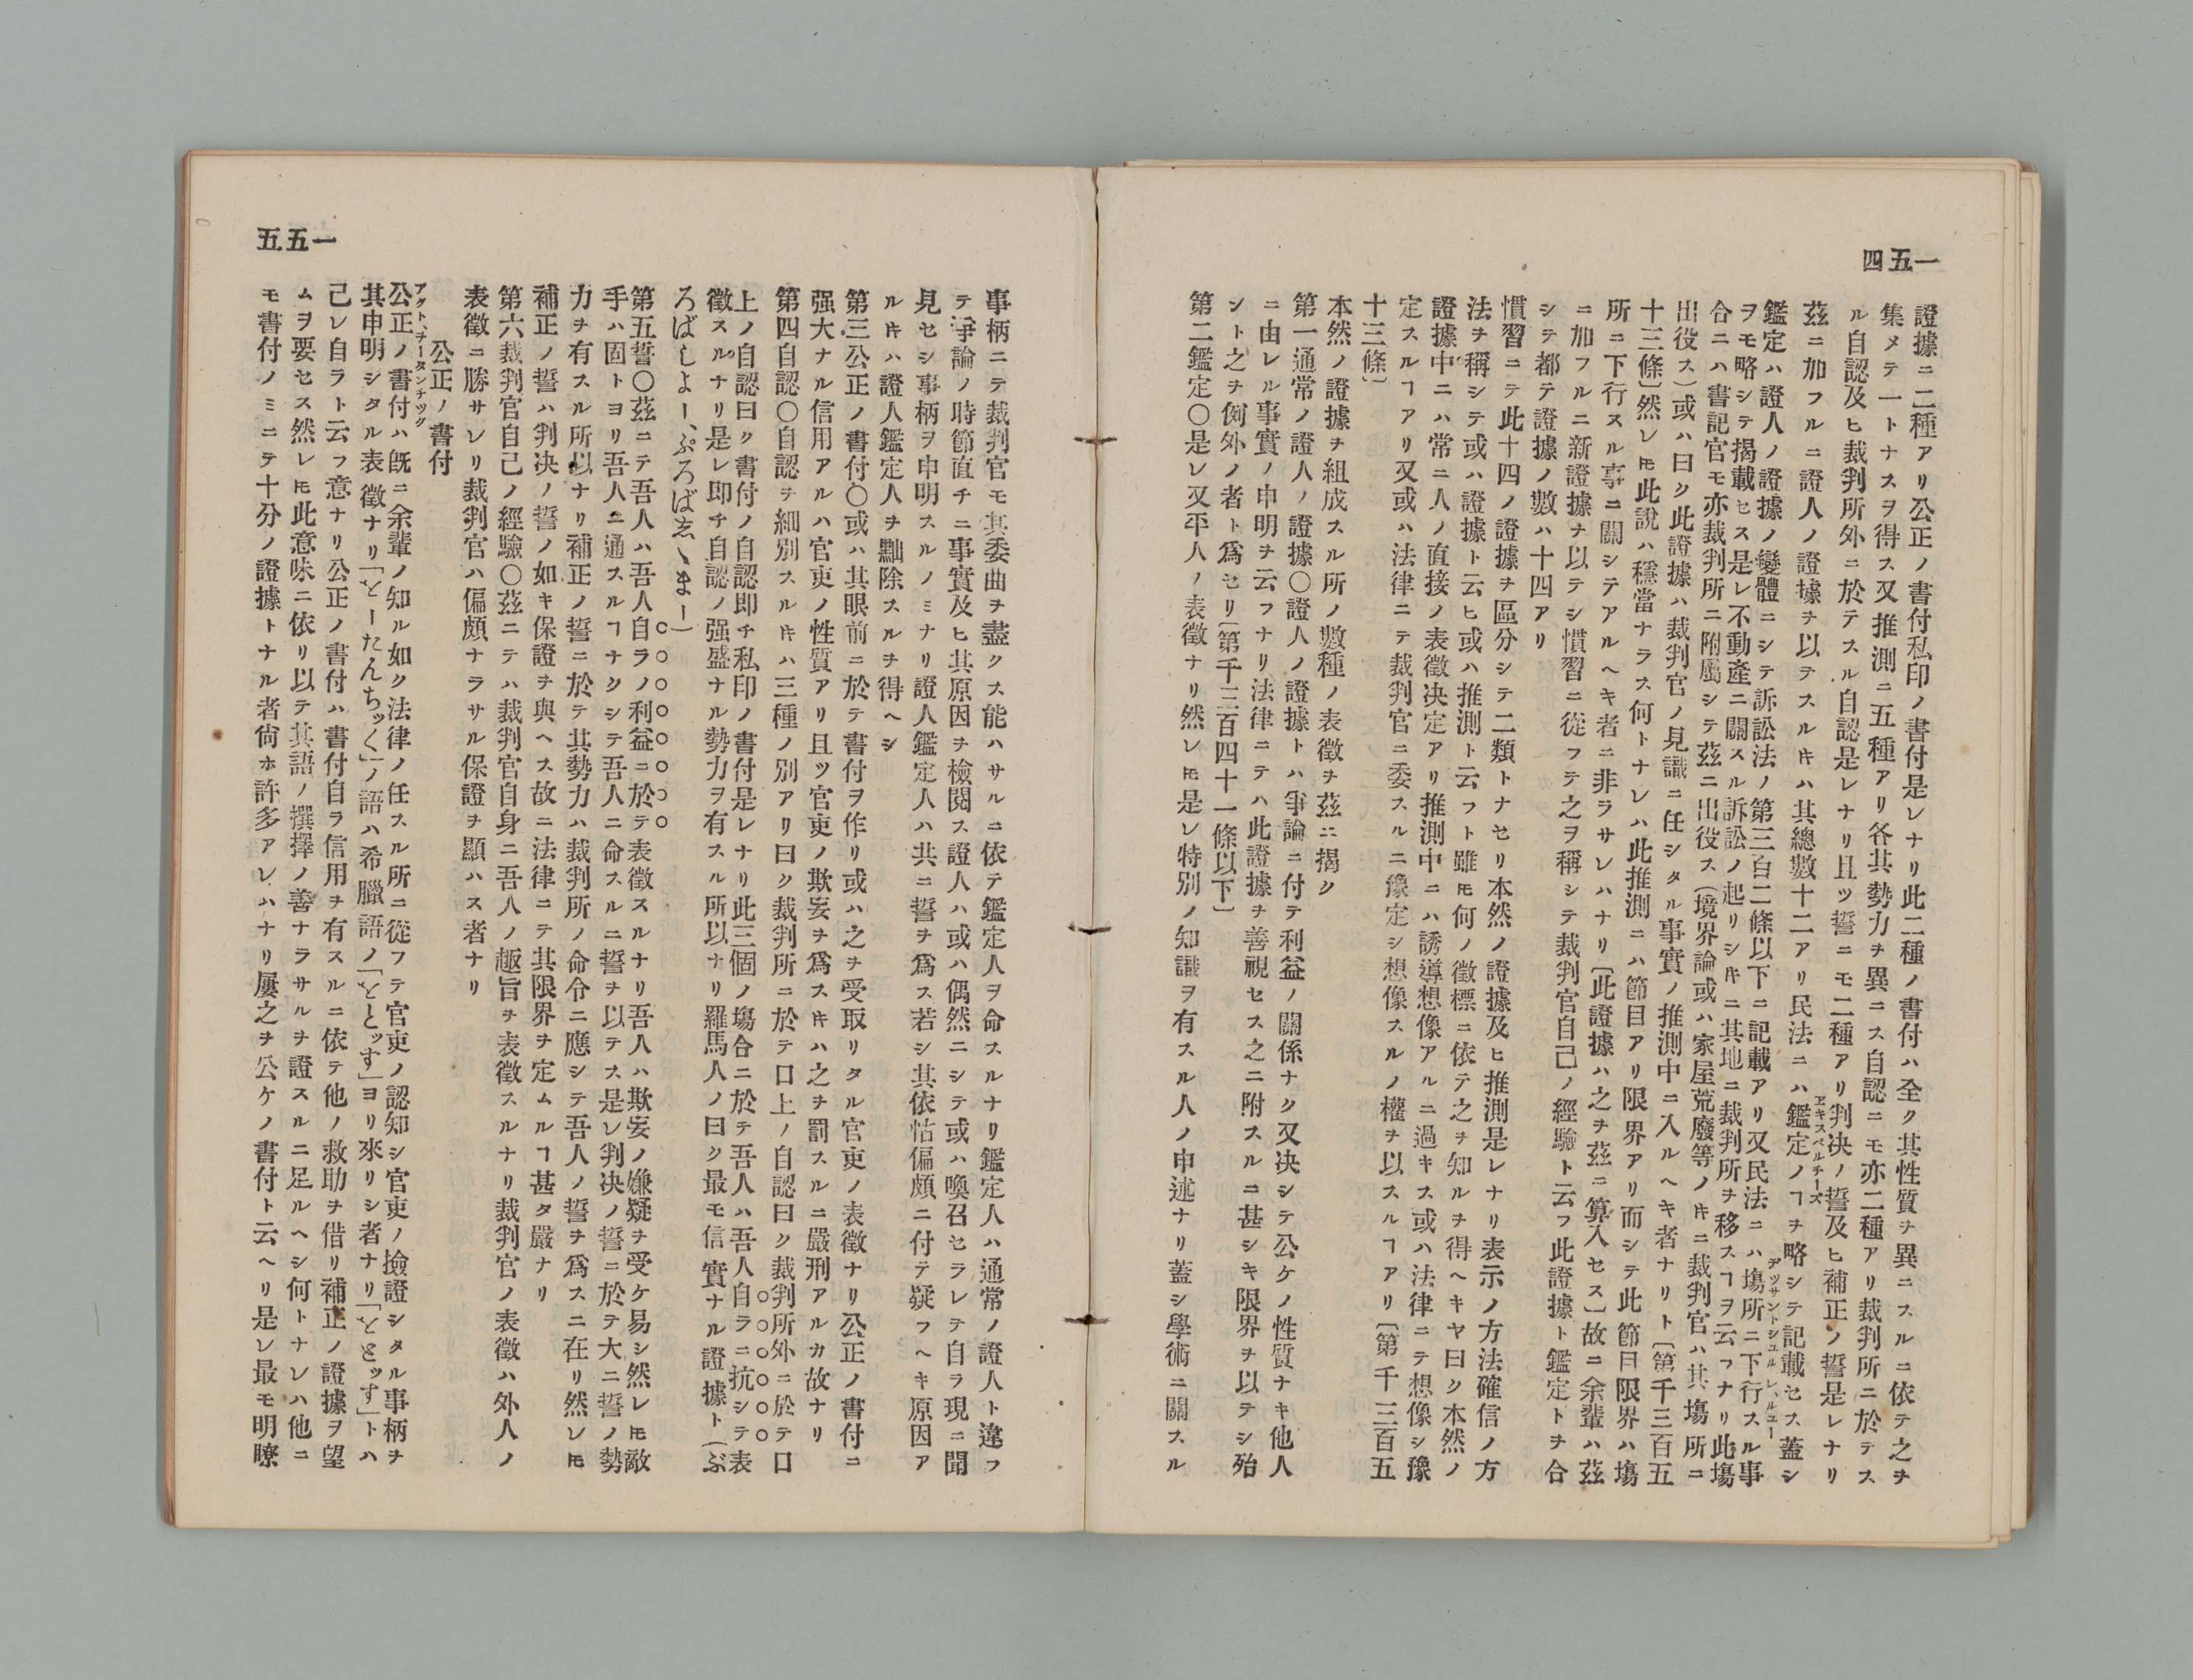 一五四
證據ニ二種アリ公正ノ書付私印ノ書付是レナリ此二種ノ書付ハ全ク其性質ヲ異ニスルニ依テ之ヲ
集メテ一トナスヲ得ス又推測ニ五種アリ各其勢力ヲ異ニス自認ニモ亦二種アリ裁判所ニ於テス
ル自認及ヒ裁判所外ニ於テスル自認是レナリ且ツ誓ニモ二種アリ判决ノ誓及ヒ補正ノ誓是レナリ
茲ニ加フルニ證人ノ證據ヲ以テスルトキハ其總數十二アリ民法ニハ鑑定ノヿヲ略シテ記載セス蓋シ
エキスペルチーズ
鑑定ハ證人ノ證據ノ變體ニシテ訴訟法ノ第三百二條以下ニ記載アリ又民法ニハ塲所ニ下行スル事
デツサントシユルレ、ルユー
ヲモ略シテ揭載セス是レ不動產ニ關スル訴訟ノ起リシ𪜈ニ其地ニ裁判所ヲ移スヿヲ云フナリ此塲
合ニハ書記官モ亦裁判所ニ附屬シテ茲ニ出役ス(境界論或ハ家屋荒廢等ノ𪜈ニ裁判官ハ其塲所ニ
出役ス)或ハ曰ク此證據ハ裁判官ノ見識ニ任シタル事實ノ推測中ニ入ルヘキ者ナリト〔第千三百五
十三條〕然レ𪜈此說ハ穩當ナラス何トナレハ此推測ニハ節目アリ限界アリ而シテ此節目限界ハ塲
所ニ下行スル事ニ關シテアルヘキ者ニ非ラサレハナリ〔此證據ハ之ヲ茲ニ算入セス〕故ニ余輩ハ茲
ニ加フルニ新證據ヲ以テシ慣習ニ從フテ之ヲ稱シテ裁判官自己ノ經驗ト云フ此證據ト鑑定トヲ合
シテ都テ證據ノ數ハ十四アリ
慣習ニテ此十四ノ證據ヲ區分シテ二類トナセリ本然ノ證據及ヒ推測是レナリ表示ノ方法確信ノ方
法ヲ稱シテ或ハ證據ト云ヒ或ハ推測ト云フト雖𪜈何ノ徵標ニ依テ之ヲ知ルヲ得ヘキヤ曰ク本然ノ
證據中ニハ常ニ人ノ直接ノ表徵决定アリ推測中ニハ誘導想像アルニ過キス或ハ法律ニテ想像シ豫
定スルヿアリ又或ハ法律ニテ裁判官ニ委スルニ豫定シ想像スルノ權ヲ以スルヿアリ〔第千三百五
十三條〕
本然ノ證據ヲ組成スル所ノ數種ノ表徵ヲ茲ニ揭ク
第一通常ノ證人ノ證據〇證人ノ證據トハ爭論ニ付テ利益ノ關係ナク又决シテ公ケノ性質ナキ他人
ニ由レル事實ノ申明ヲ云フナリ法律ニテハ此證據ヲ善視セス之ニ附スルニ甚シキ限界ヲ以テシ殆
ント之ヲ例外ノ者ト爲セリ〔第千三百四十一條以下〕
第二鑑定〇是レ又平人ノ表徵ナリ然レ𪜈是レ特別ノ知識ヲ有スル人ノ申述ナリ蓋シ學術ニ關スル
一五五
事柄ニテ裁判官モ其委曲ヲ盡クス能ハサルニ依テ鑑定人ヲ命スルナリ鑑定人ハ通常ノ證人ト違フ
テ爭論ノ時節直チニ事實及ヒ其原因ヲ檢閱ス證人ハ或ハ偶然ニシテ或ハ喚召セラレテ自ラ現ニ聞
見セシ事柄ヲ申明スルノミナリ證人鑑定人ハ共ニ誓ヲ爲ス若シ其依怙偏頗ニ付テ疑フヘキ原因ア
ル𪜈ハ證人鑑定人ヲ黜除スルヲ得ヘシ
第三公正ノ書付〇或ハ其眼前ニ於テ書付ヲ作リ或ハ之ヲ受取リタル官吏ノ表徵ナリ公正ノ書付ニ
强大ナル信用アルハ官吏ノ性質アリ且ツ官吏ノ欺妄ヲ爲ス𪜈ハ之ヲ罰スルニ嚴刑アルカ故ナリ
第四自認〇自認ヲ細別スル𪜈ハ三種ノ別アリ曰ク裁判所ニ於テ口上ノ自認曰ク裁判所外ニ於テ口
上ノ自認曰ク書付ノ自認即チ私印ノ書付是レナリ此三個ノ塲合ニ於テ吾人ハ吾人自ラニ抗シテ表
徵スルナリ是レ即チ自認ノ强盛ナル勢力ヲ有スル所以ナリ羅馬人ノ曰ク最モ信實ナル證據ト(ぷ
ろばしよー、ぷろばゑヽまー)
第五誓〇茲ニテ吾人ハ吾人自ラノ利益ニ於テ表徵スルナリ吾人ハ欺妄ノ嫌疑ヲ受ケ易シ然レ𪜈敵
手ハ固トヨリ吾人ニ通スルヿナクシテ吾人ニ命スルニ誓ヲ以テス是レ判决ノ誓ニ於テ大ニ誓ノ勢
力ヲ有スル所以ナリ補正ノ誓ニ於テ其勢力ハ裁判所ノ命令ニ應シテ吾人ノ誓ヲ爲スニ在リ然レ𪜈
補正ノ誓ハ判决ノ誓ノ如キ保證ヲ與ヘス故ニ法律ニテ其限界ヲ定ムルヿ甚タ嚴ナリ
第六裁判官自己ノ經驗〇茲ニテハ裁判官自身ニ吾人ノ趣旨ヲ表徵スルナリ裁判官ノ表徵ハ外人ノ
表徵ニ勝サレリ裁判官ハ偏頗ナラサル保證ヲ顯ハス者ナリ
公正ノ書付
アクト、ヲータンチツグ
公正ノ書付ハ旣ニ余輩ノ知ル如ク法律ノ任スル所ニ從フテ官吏ノ認知シ官吏ノ撿證シタル事柄ヲ
其申明シタル表徵ナリ「とーたんちック」ノ語ハ希臘語ノ「ととッす」ヨリ來リシ者ナリ「ととッす」トハ
己レ自ラト云フ意ナリ公正ノ書付ハ書付自ラ信用ヲ有スルニ依テ他ノ救助ヲ借リ補正ノ證據ヲ望
ムヲ要セス然レ𪜈此意味ニ依リ以テ其語ノ撰擇ノ善ナラサルヲ證スルニ足ルヘシ何トナレハ他ニ
モ書付ノミニテ十分ノ證據トナル者尙ホ許多アレハナリ屢之ヲ公ケノ書付ト云ヘリ是レ最モ明瞭